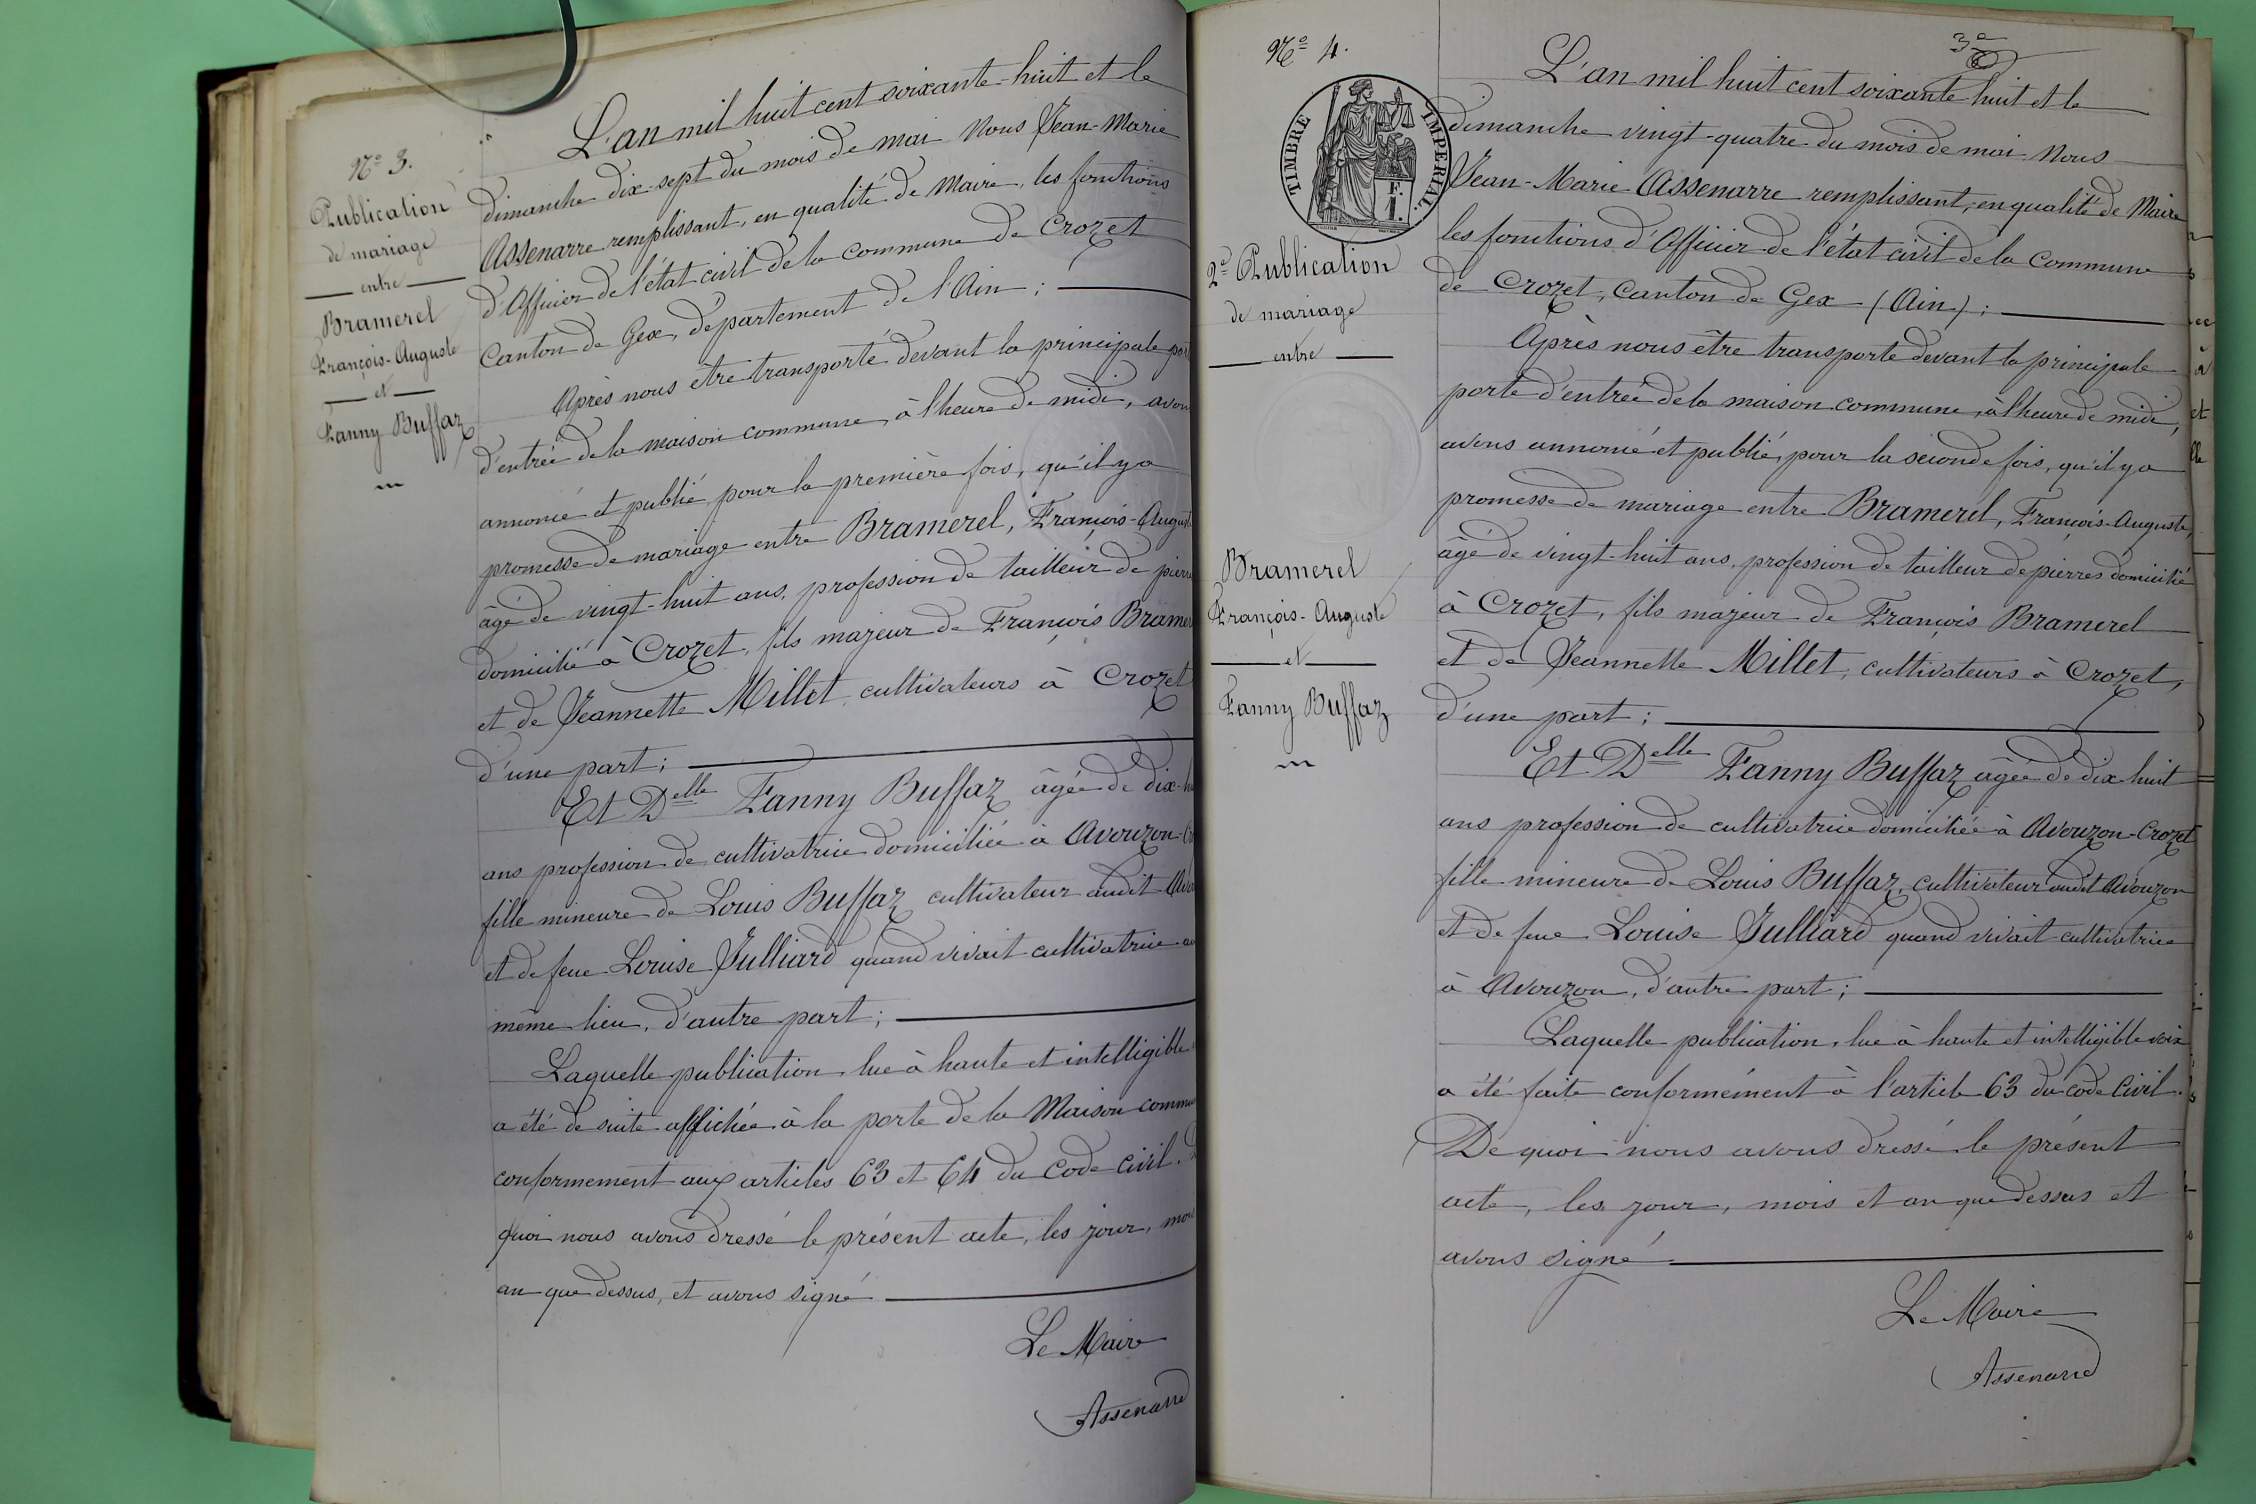 N° 3.
Publication
de mariage
entre
Bramerel
François-Auguste
et
Fanny Buffaz
L'an mil huit cent soixante-huit et le
dimanche dix-sept du mois de mai Nous Jean-Marie
Assenarre remplissant, en qualité de Maire, les fonctions
d'Officier de l'état civil de la commune de Crozet
Canton de Gex, département de l'Ain ;
Après nous être transporté devant la principale por
d'entrée de la maison commune, à l'heure de midi, avon
annoncé et publié, pour la première fois, qu'il y a
promesse de mariage entre Bramerel, François-August
âgé de vingt-huit ans, profession de tailleur de pierre
domicilié à Crozet, fils majeur de François Bramer
et de Jeannette Millet, cultivateurs à Crozet
d'une part ;
Et Delle Fanny Buffaz âgée de dix-h
ans profession de cultivatrice domiciliée à Avouzon-C
fille mineure de Louis Buffaz cultivateur audit Avo
et de feue Louise Julliard quand vivait cultivatrice au
même lieu, d'autre part ;
Laquelle publication, lue à haute et intelligible
a été de suite affichée à la porte de la Maison commu
conformement aux articles 63 et 64 du code civil. D
quoi nous avons dressé le présent acte, les jour, moi
an que dessus, et avons signé
Le Maire
Assenarre
N° 4.
TIMBRE IMPERIAL.
F.
1.
2e Publication
de mariage
entre
Bramerel
François-Auguste
et
Fanny Buffaz
3e
L'an mil huit cent soixante huit et le
dimanche vingt-quatre du mois de mai Nous
Jean-Marie Assenarre remplissant, en qualité de Maire
les fonctions d'Officier de l'état civil de la Commune
de Crozet, Canton de Gex (Ain) ;
Après nous être transporté devant la principale
porte d'entrée de la maison commune, à l'heure de midi,
avons annoncé et publié, pour la seconde fois, qu'il y a
promesse de mariage entre Bramerel, François-Auguste,
âgé de vingt-huit ans, profession de tailleur de pierres domicilié
à Crozet, fils majeur de François Bramerel
et de Jeannette Millet, cultivateurs à Crozet,
d'une part ;
Et Delle Fanny Buffaz âgée de dix huit
ans profession de cultivatrice domiciliée à Avouzon-Crozet
fille mineure de Louis Buffaz, cultivateur audit Avouzon
et de feue Louise Julliard quand vivait cultivatrice
à Avouzon, d'autre part ;
Laquelle publication, lue à haute et intelligible voix
a été faite conformément à l'article 63 du code Civil.
De quoi nous avons dressé le présent
acte, les jour, mois et an que dessus et
avons signé
Le Maire
Assenarre